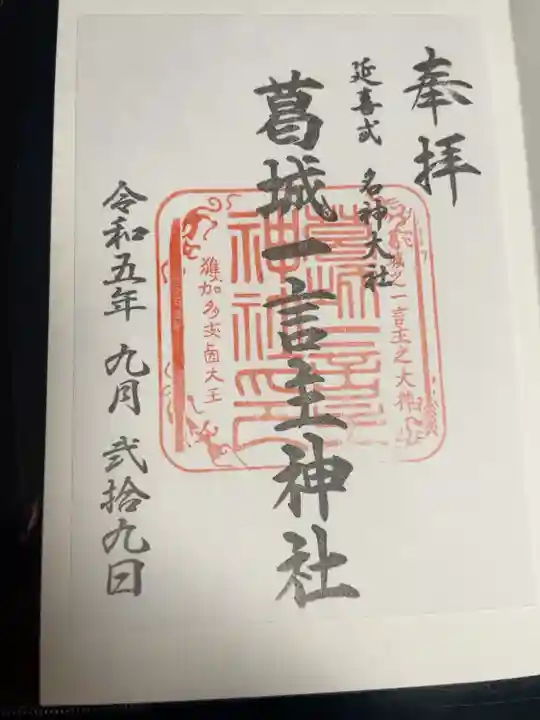 奉拝
延喜式 名神大社
葛城一言主神社
葛城之一言主之大神
葛城一言主神社印
獲加多支鹵大王
令和五年 九月 弐拾九日